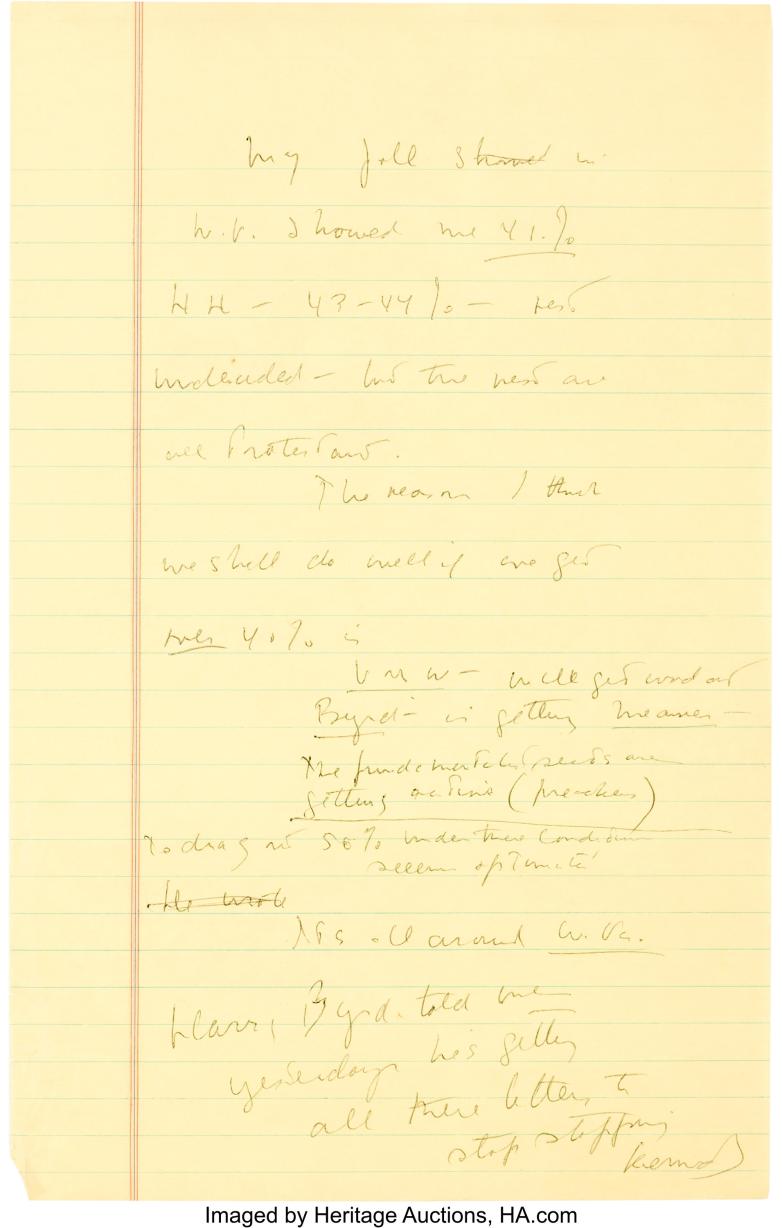 My poll showed in
W.V. showed me 41.%
HH - 43-44% - rest
undecided - but the rest are
all Protestant.
The reason I think
we shall do well if we get
over 40% is
UMW - will get word out
Byrd - is getting meaner -
The fundamentalist sects are
getting active (preachers)
To drag out 50% under these conditions
seems optimistic
He wrote
It's all around W. Va.
Harry Byrd told me
yesterday he's getting
all these letters to
stop stopping
Kennedy
Imaged by Heritage Auctions, HA.com